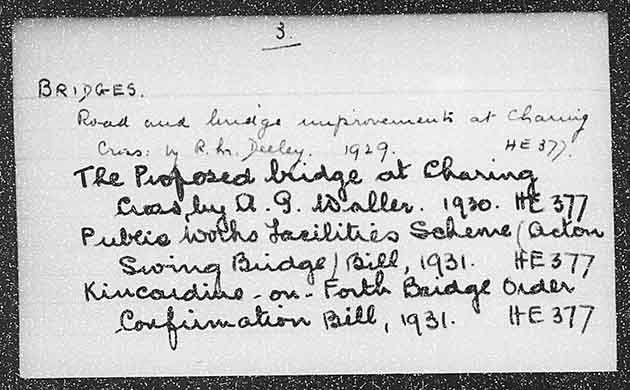 3.
BRIDGES.
Road and bridge improvements at Charing
Cross: by R. M. Deeley. 1929. HE 377.
The Proposed bridge at Charing
Cross, by A. G. Waller. 1930. HE 377
Public Works Facilities Scheme (Acton
Swing Bridge) Bill, 1931. HE 377
Kincardine-on-Forth Bridge Order
Confirmation Bill, 1931. HE 377